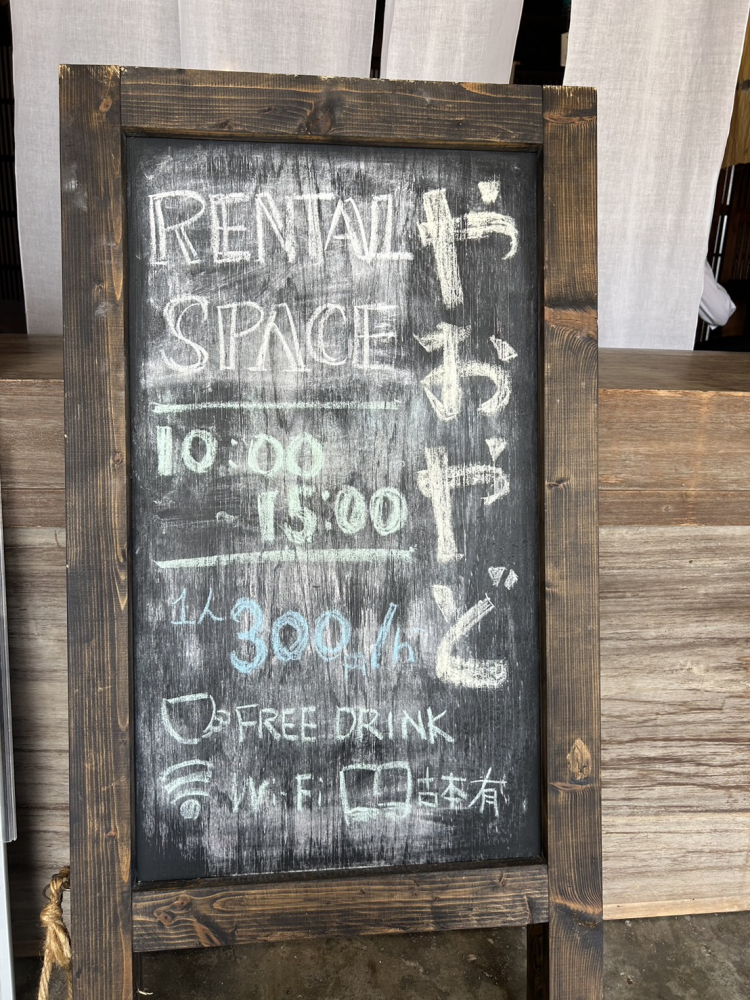 やおやど
RENTAL
SPACE
10:00
~ 15:00
1人 300円/h
FREE DRINK
Wi-Fi 古本有